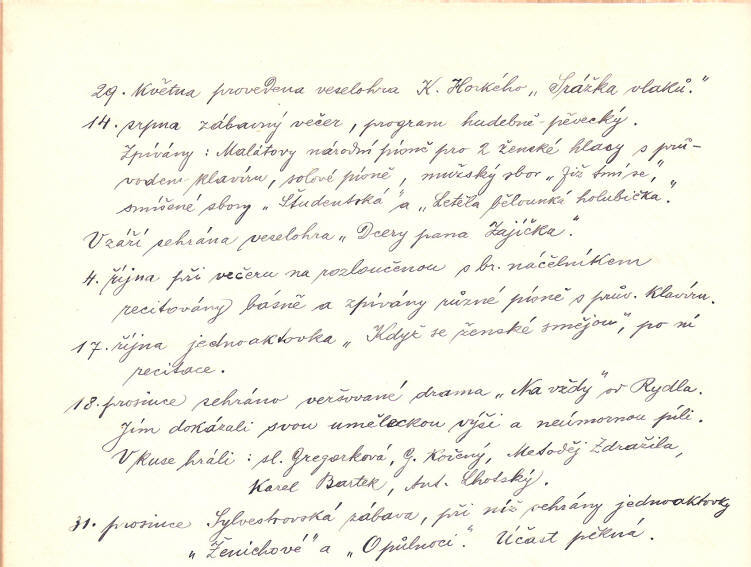 29. května provedena veselohra K. Horkého „Srážka vlaků."
14. srpna zábavný večer, program hudebně-pěvecký.
Zpívány: Malátovy národní písně pro 2 ženské hlasy s prů-
vodem klavíru, solové písně, mužský sbor „Již tmí se",
smíšené sbory „Študentská" a „Letěla bělounká holubička."
V září sehrána veselohra „Dcery pana Zajíčka".
4. října při večeru na rozloučenou s br. náčelníkem
recitovány básně a zpívány různé písně s prův. klavíru.
17. října jednoaktovka „Když se ženské smějou", po ní
recitace.
18. prosince sehráno veršované drama „Na vždy" od Rydla.
Jím dokázali svou uměleckou výši a neúmornou píli.
V kuse hráli: sl. Gregorková, G. Kořený, Metoděj Zdražila,
Karel Bartek, Ant. Lhotský.
31. prosince Sylvestrovská zábava, při níž sehrány jednoaktovky
„Ženichové" a „O půlnoci". Účast pěkná.